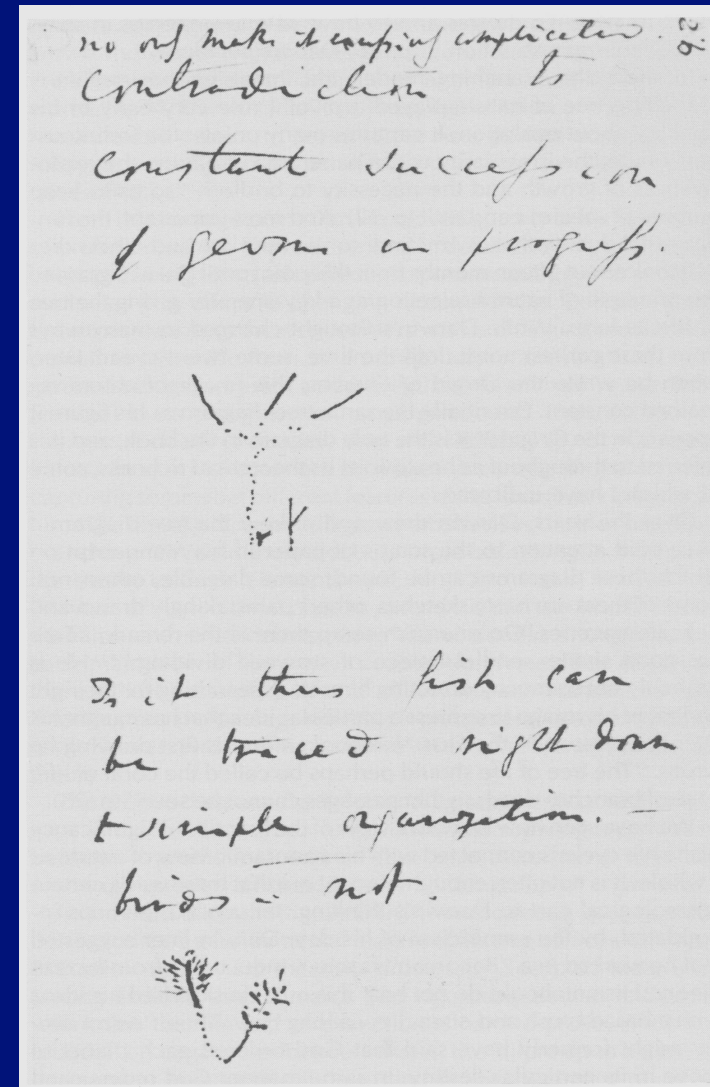 26
no only makes it excessively complicated
contradiction to
constant succession
of germs in progress.
Is it thus fish can
be traced right down
to simple organization. —
birds — not.